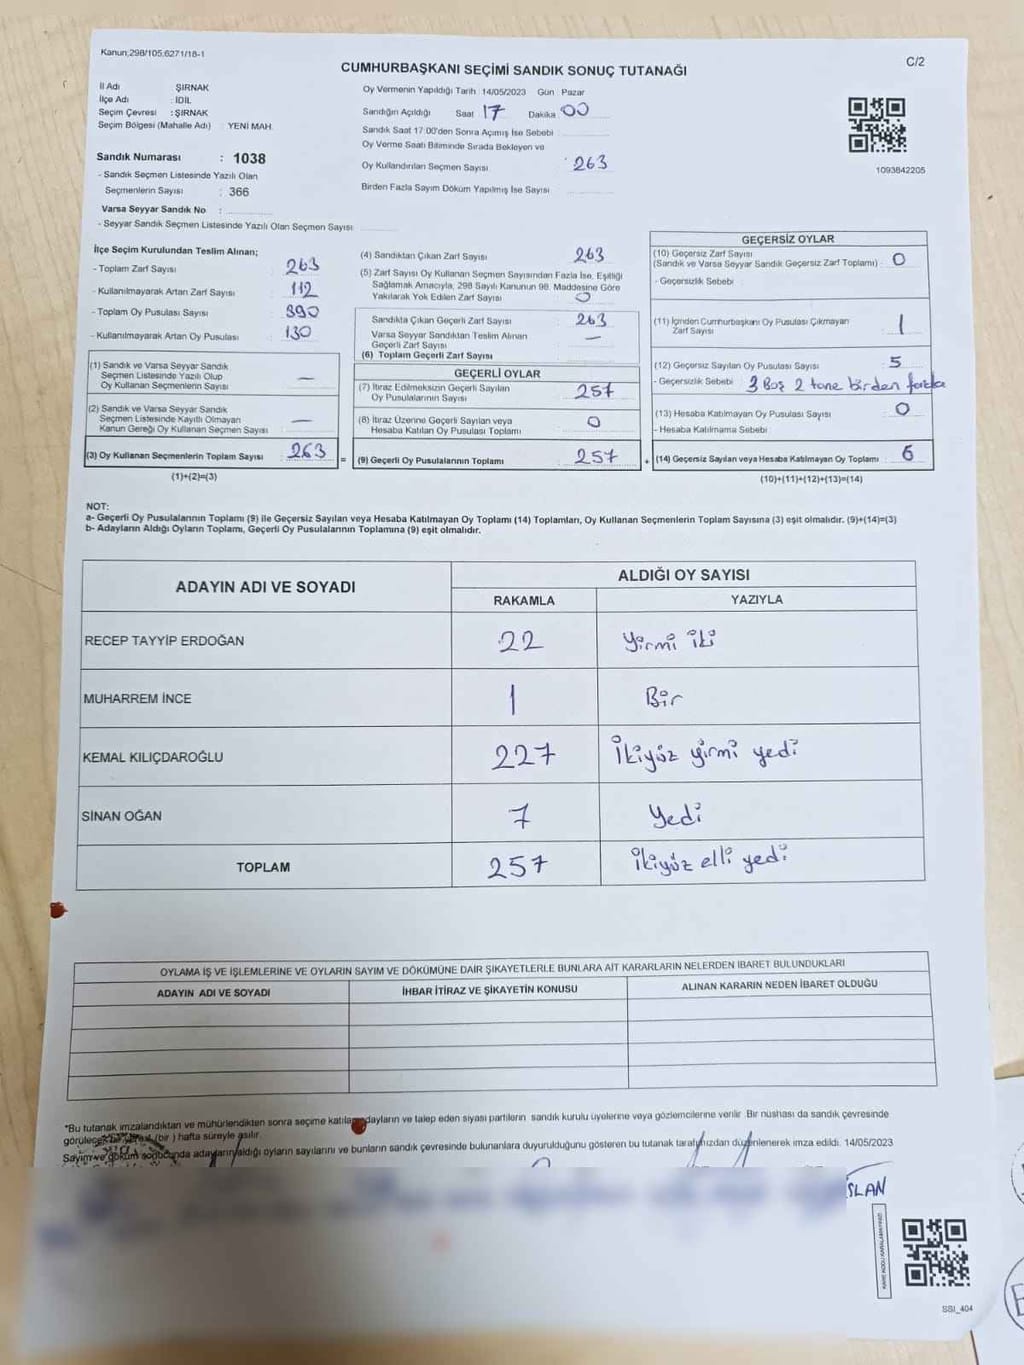 Kanun;298/105,6271/18-1
C/2
CUMHURBAŞKANI SEÇİMİ SANDIK SONUÇ TUTANAĞI
İl Adı : ŞIRNAK
İlçe Adı : İDİL
Seçim Çevresi : ŞIRNAK
Seçim Bölgesi (Mahalle Adı) : YENİ MAH.
Sandık Numarası : 1038
- Sandık Seçmen Listesinde Yazılı Olan
Seçmenlerin Sayısı : 366
Varsa Seyyar Sandık No :
- Seyyar Sandık Seçmen Listesinde Yazılı Olan Seçmen Sayısı
Oy Vermenin Yapıldığı Tarih 14/05/2023 Gün Pazar
Sandığın Açıldığı Saat 17 Dakika 00
Sandık Saat 17:00'den Sonra Açımış İse Sebebi
Oy Verme Saati Bitiminde Sırada Bekleyen ve
Oy Kullandırılan Seçmen Sayısı 263
Birden Fazla Sayım Döküm Yapılmış İse Sayısı
1093842205
İlçe Seçim Kurulundan Teslim Alınan;
- Toplam Zarf Sayısı : 263
- Kullanılmayarak Artan Zarf Sayısı : 112
- Toplam Oy Pusulası Sayısı : 390
- Kullanılmayarak Artan Oy Pusulası : 130
(1) Sandık ve Varsa Seyyar Sandık
Seçmen Listesinde Yazılı Olup
Oy Kullanan Seçmenlerin Sayısı —
(2) Sandık ve Varsa Seyyar Sandık
Seçmen Listesinde Kayıtlı Olmayan
Kanun Gereği Oy Kullanan Seçmen Sayısı —
(3) Oy Kullanan Seçmenlerin Toplam Sayısı 263 =
(1)+(2)=(3)
(4) Sandıktan Çıkan Zarf Sayısı 263
(5) Zarf Sayısı Oy Kullanan Seçmen Sayısından Fazla İse, Eşitliği
Sağlamak Amacıyla, 298 Sayılı Kanunun 98. Maddesine Göre
Yakılarak Yok Edilen Zarf Sayısı 0
Sandıkta Çıkan Geçerli Zarf Sayısı 263
Varsa Seyyar Sandıktan Teslim Alınan
Geçerli Zarf Sayısı —
(6) Toplam Geçerli Zarf Sayısı
GEÇERLİ OYLAR
(7) İtiraz Edilmeksizin Geçerli Sayılan
Oy Pusulalarının Sayısı 257
(8) İtiraz Üzerine Geçerli Sayılan veya
Hesaba Katılan Oy Pusulası Toplamı 0
(9) Geçerli Oy Pusulalarının Toplamı 257 +
GEÇERSİZ OYLAR
(10) Geçersiz Zarf Sayısı
(Sandık ve Varsa Seyyar Sandık Geçersiz Zarf Toplamı) 0
- Geçersizlik Sebebi
(11) İçinden Cumhurbaşkanı Oy Pusulası Çıkmayan
Zarf Sayısı 1
(12) Geçersiz Sayılan Oy Pusulası Sayısı 5
- Geçersizlik Sebebi 3 Boş 2 tane birden fazla
(13) Hesaba Katılmayan Oy Pusulası Sayısı 0
- Hesaba Katılmama Sebebi
(14) Geçersiz Sayılan veya Hesaba Katılmayan Oy Toplamı 6
(10)+(11)+(12)+(13)=(14)
NOT:
a- Geçerli Oy Pusulalarının Toplamı (9) ile Geçersiz Sayılan veya Hesaba Katılmayan Oy Toplamı (14) Toplamları, Oy Kullanan Seçmenlerin Toplam Sayısına (3) eşit olmalıdır. (9)+(14)=(3)
b- Adayların Aldığı Oyların Toplamı, Geçerli Oy Pusulalarının Toplamına (9) eşit olmalıdır.
ADAYIN ADI VE SOYADI ALDIĞI OY SAYISI
RAKAMLA YAZIYLA
RECEP TAYYİP ERDOĞAN 22 Yirmi iki
MUHARREM İNCE 1 Bir
KEMAL KILIÇDAROĞLU 227 İkiyüz yirmi yedi
SİNAN OĞAN 7 Yedi
TOPLAM 257 İkiyüz elli yedi
OYLAMA İŞ VE İŞLEMLERİNE VE OYLARIN SAYIM VE DÖKÜMÜNE DAİR ŞİKAYETLERLE BUNLARA AİT KARARLARIN NELERDEN İBARET BULUNDUKLARI
ADAYIN ADI VE SOYADI İHBAR İTİRAZ VE ŞİKAYETİN KONUSU ALINAN KARARIN NEDEN İBARET OLDUĞU
*Bu tutanak imzalandıktan ve mühürlendikten sonra seçime katılan adayların ve talep eden siyasi partilerin sandık kurulu üyelerine veya gözlemcilerine verilir. Bir nüshası da sandık çevresinde
görülecek bir yere (bir) hafta süreyle asılır.
Sayım ve döküm sonucunda adayların aldığı oyların sayılarını ve bunların sandık çevresinde bulunanlara duyurulduğunu gösteren bu tutanak tarafımızdan düzenlenerek imza edildi. 14/05/2023
SLAN
SSI_404